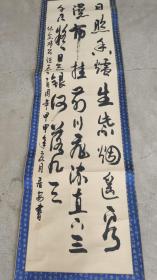 日照香爐生紫烟遥看
瀑布挂前川飛流直下三
千尺疑是银河落九天
年夏月 書